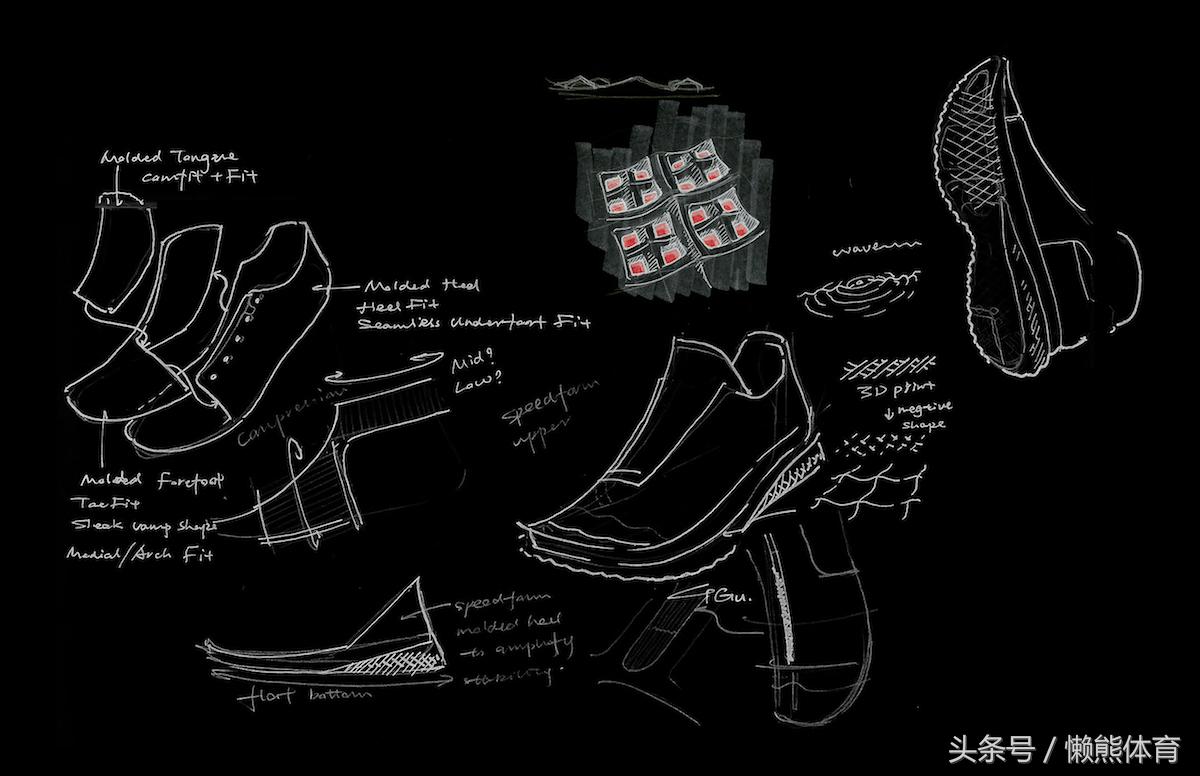 Molded Tongue
comfit + Fit
Molded Heel
Heel Fit
Seamless Underfoot Fit
Mid?
Low?
compression
Molded Forefoot
Toe Fit
Sleek vamp shape
Medial/Arch Fit
speedform
upper
wave
3D print
negtive
shape
speedform
molded heel
to amplify
stability.
flat bottom
头条号 / 懒熊体育